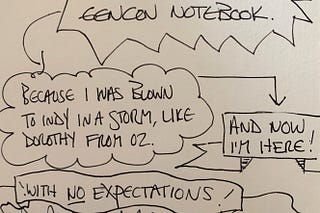 GENCON NOTEBOOK.
BECAUSE I WAS BLOWN
TO INDY IN A STORM, LIKE
DOROTHY FROM OZ.
AND NOW
I'M HERE!
WITH NO EXPECTATIONS!